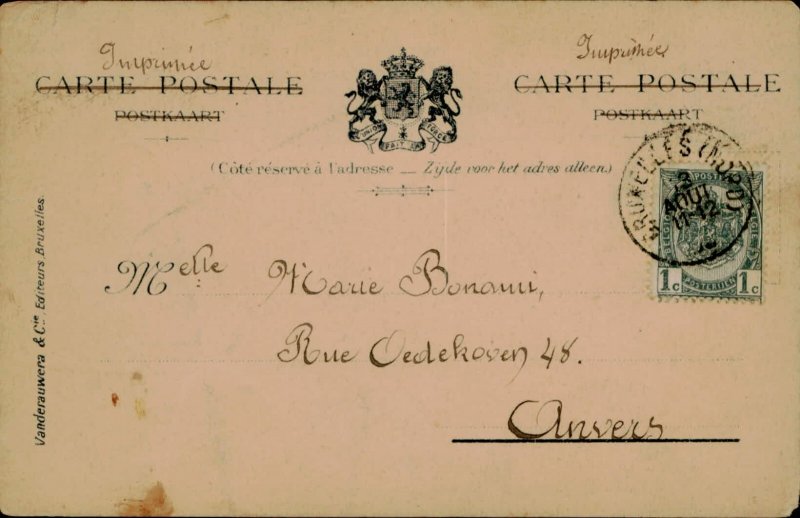 Imprimée
Imprimée
CARTE POSTALE
CARTE POSTALE
POSTKAART
POSTKAART
L'UNION FAIT LA FORCE
(Côté réservé à l'adresse — Zijde voor het adres alleen.)
BRUXELLES (NORD)
3
AOUT
11-12
POSTES
BELGIQUE
1c POSTERIJEN 1c
Melle Marie Bonami,
Rue Oedekoven 48.
Anvers
Vanderauwera & Cie, Editeurs, Bruxelles.